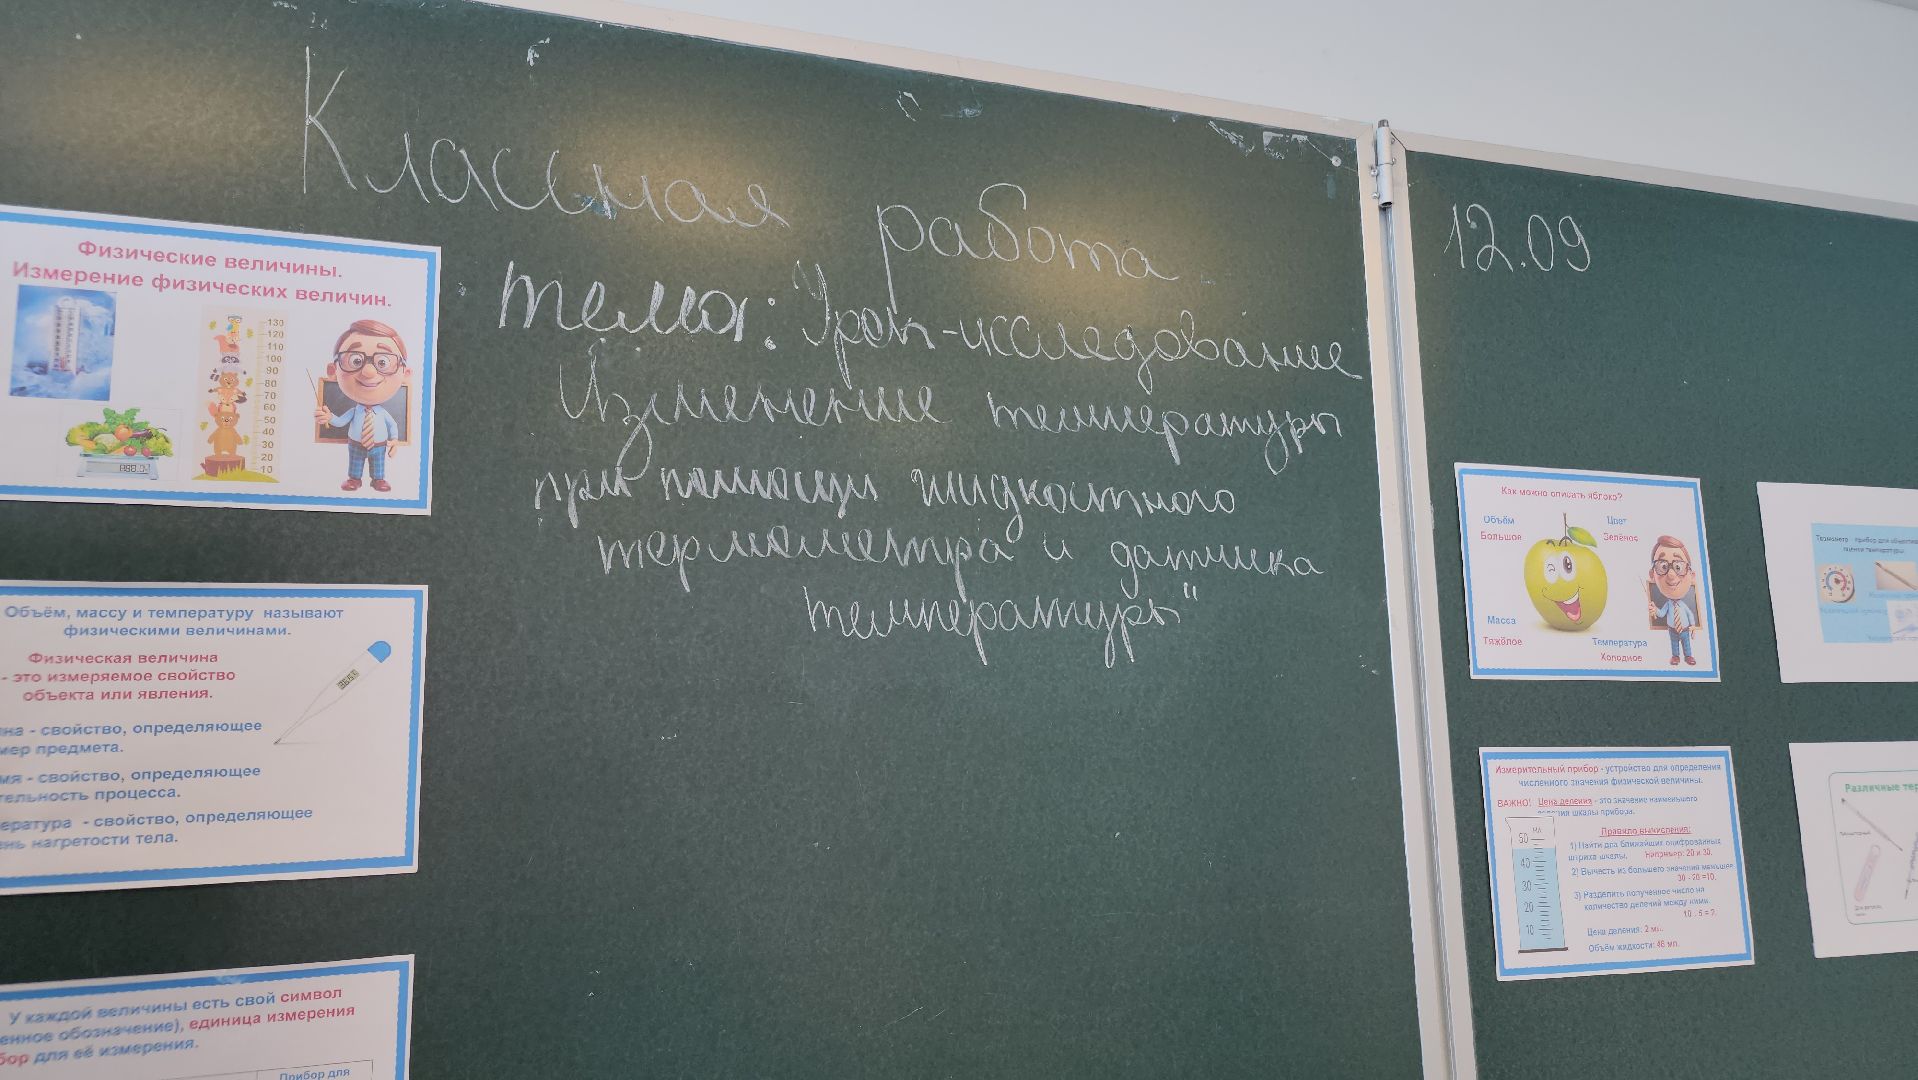 Классная работа
12.09
тема: Урок-исследование
Изменение температуры
при помощи жидкостного
термометра и датчика
температуры"
Физические величины.
Измерение физических величин.
130
120
110
100
90
80
70
60
50
40
30
20
10
Объём, массу и температуру называют
физическими величинами.
Физическая величина
- это измеряемое свойство
объекта или явления.
- свойство, определяющее
предмета.
- свойство, определяющее
процесса.
- свойство, определяющее
нагретости тела.
У каждой величины есть свой символ
обозначение), единица измерения
для её измерения.
Прибор для
Как можно описать яблоко?
Объём
Большое
Цвет
Зелёное
Масса
Тяжёлое
Температура
Холодное
Измерительный прибор - устройство для определения
численного значения физической величины.
ВАЖНО! Цена деления - это значение наименьшего
шкалы прибора.
Правило вычисления:
1) Найти два ближайших оцифрованных
штриха шкалы. Например: 20 и 30.
2) Вычесть из большего значения меньшее
30 - 20 =10.
3) Разделить полученное число на
количество делений между ними.
10 : 5 = 2.
Цена деления: 2 мл.
Объём жидкости: 46 мл.
мл
50
40
30
20
10
прибор для
оценки температуры.
Различные